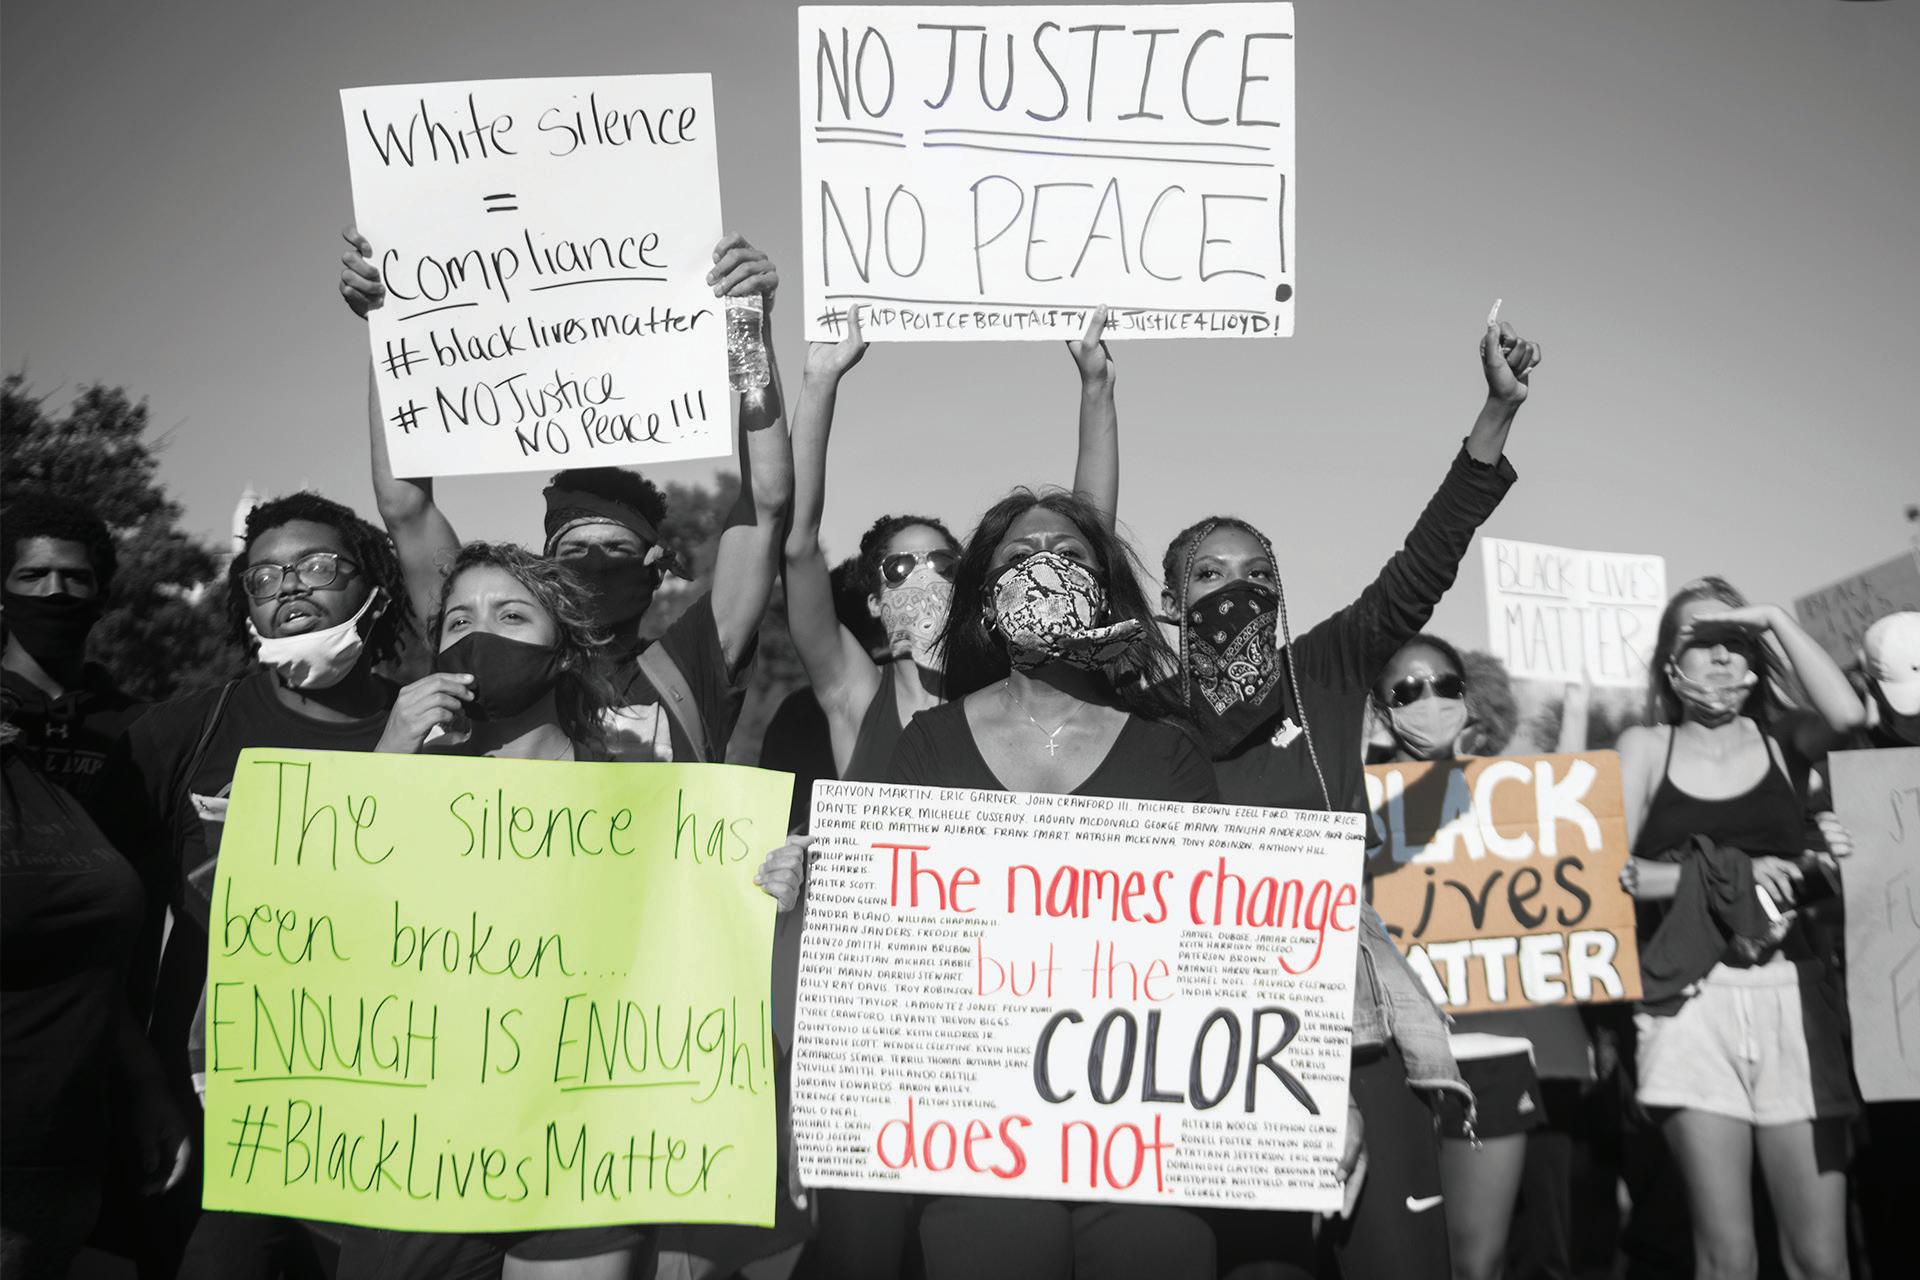 White silence
=
Compliance
#blacklivesmatter
#NOJustice
NO Peace!!!
NO JUSTICE
NO PEACE!
#ENDPOLICEBRUTALITY #JUSTICE4LLOYD!
BLACK LIVES
MATTER
The silence has
been broken....
ENOUGH IS ENOUgh!
#BlackLivesMatter.
TRAYVON MARTIN. ERIC GARNER. JOHN CRAWFORD III. MICHAEL BROWN EZELL FORD. TAMIR RICE.
DANTE PARKER. MICHELLE CUSSEAUX. LAQUAN MCDONALD. GEORGE MANN. TANISHA ANDERSON.
JERAME REID. MATTHEW AJIBADE. FRANK SMART. NATASHA MCKENNA. TONY ROBINSON. ANTHONY HILL.
MYA HALL.
PHILLIP WHITE
ERIC HARRIS.
WALTER SCOTT.
BRENDON GLENN
The names change
SANDRA BLAND. WILLIAM CHAPMAN II.
JONATHAN SANDERS. FREDDIE BLUE.
ALONZO SMITH. RUMAIN BRISBON.
ALEXIA CHRISTIAN. MICHAEL SABBIE.
JOSEPH MANN. DARRIUS STEWART.
BILLY RAY DAVIS. TROY ROBINSON.
but the
SAMUEL DUBOSE. JAMAR CLARK.
KEITH HARRISON MCLEOD.
PATERSON BROWN
MICHAEL NOEL. SALVADO ELLSWOOD.
INDIA KAGER. PETER GAINES.
CHRISTIAN TAYLOR. LAMONTEZ JONES. FELIX KUMI
TYREE CRAWFORD. LAVANTE TREVON BIGGS.
QUINTONIO LEGRIER. KEITH CHILDRESS JR.
ANTRONIE SCOTT. WENDELL CELESTINE. KEVIN HICKS.
DEMARCUS SEMER. TERRILL THOMAS. BOTHAM JEAN.
SYLVILLE SMITH. PHILANDO CASTILE
JORDAN EDWARDS. AARON BAILEY.
TERENCE CRUTCHER. ALTON STERLING.
COLOR
MICHAEL
MILES HALL.
DARIUS
ROBINSON.
PAUL O'NEAL
MICHAEL L. DEAN
DAVID JOSEPH
does not.
ALTERIA WOODS STEPHON CLARK.
RONELL FOSTER. ANTWON ROSE II.
ATATIANA JEFFERSON.
DOMINIQUE CLAYTON.
CHRISTOPHER WHITFIELD.
GEORGE FLOYD.
BLACK
Lives
MATTER